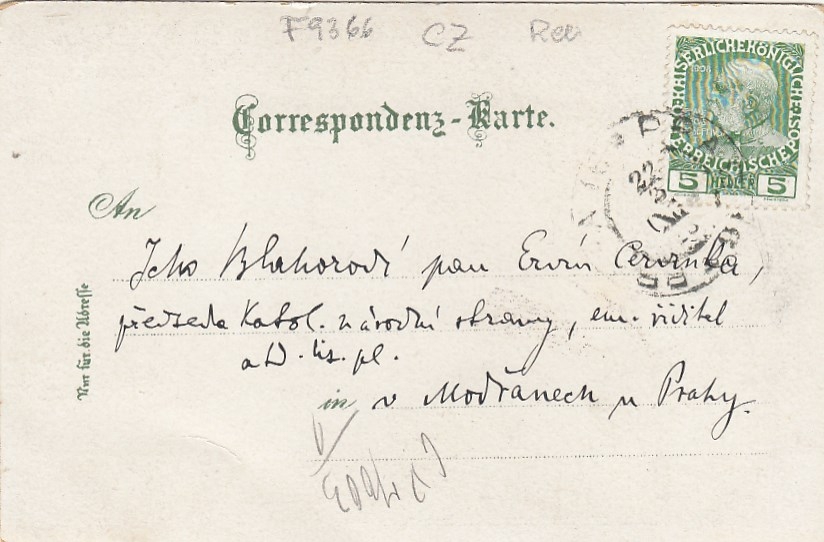 F9366 CZ
Correspondenz-Karte.
KAISERLICHE KÖNIGLICHE ÖSTERREICHISCHE POST
5 HELLER 5
An
Jeho Blahorodí pan Ervín Červinka,
předseda Katol. národní strany, em. řiditel
a t.d.
in v Modřanech u Prahy.
Nur für die Adresse